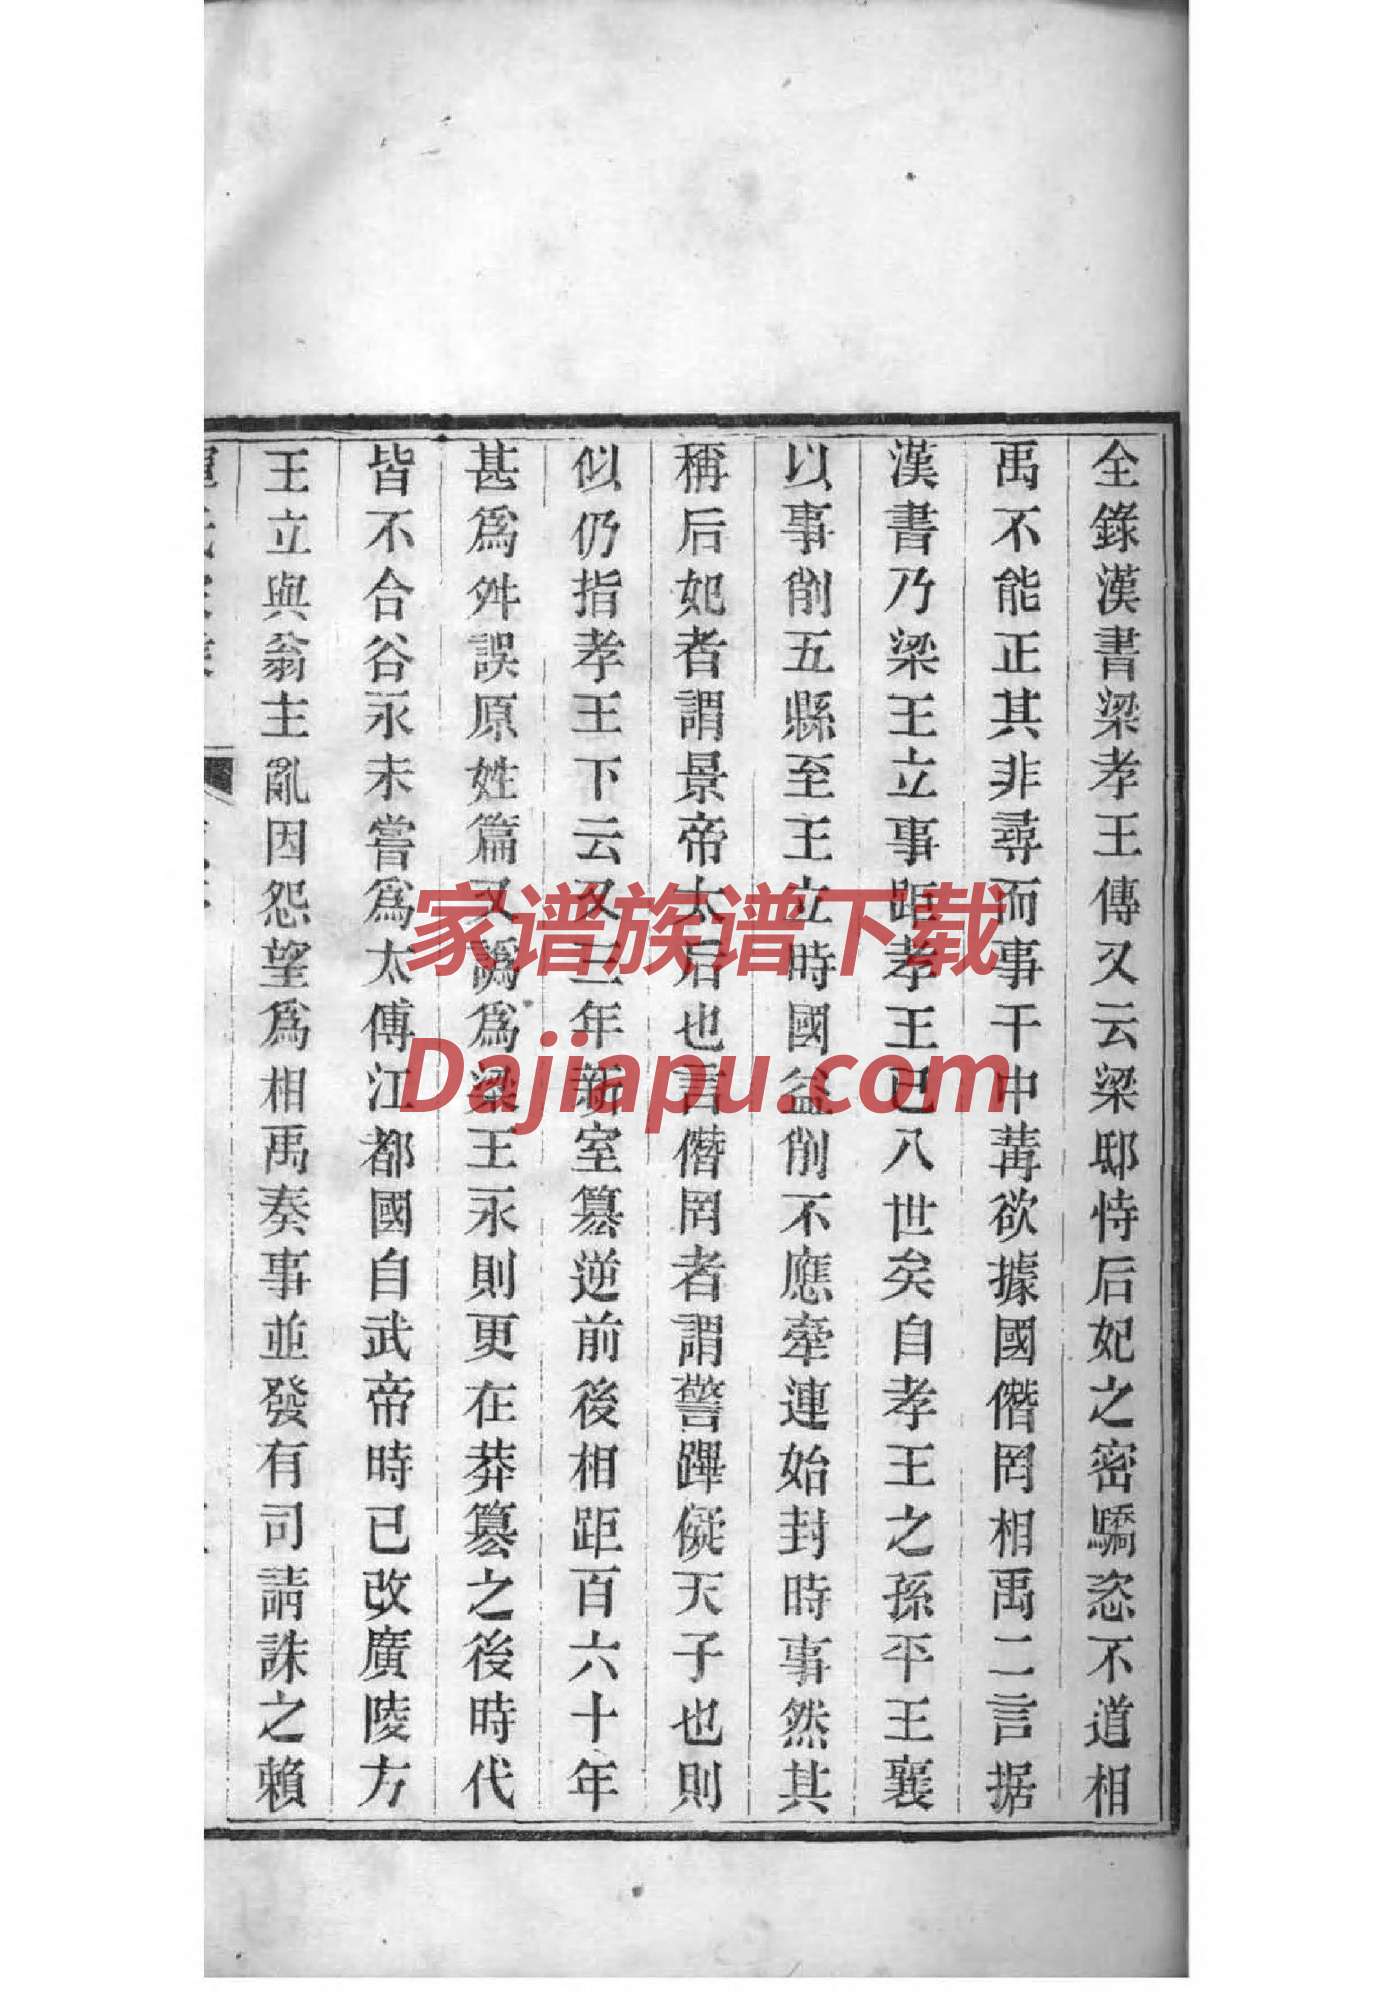 全錄漢書梁孝王傳又云梁邸恃后妃之密驕恣不道相
禹不能正其非尋而事干中冓欲據國僭罔相禹二言据
漢書乃梁王立事距孝王已八世矣自孝王之孫平王襄
以事削五縣至王立時國益削不應牽連始封時事然其
稱后妃者謂景帝太后也言僭罔者謂警蹕儗天子也則
似仍指孝王下云又三年新室篡逆前後相距百六十年
甚爲舛誤原姓篇又譌爲梁王永則更在莽篡之後時代
皆不合谷永未嘗爲太傅江都國自武帝時已改廣陵方
王立與翁主亂因怨望爲相禹奏事並發有司請誅之賴
家谱族谱下载
Dajiapu.com